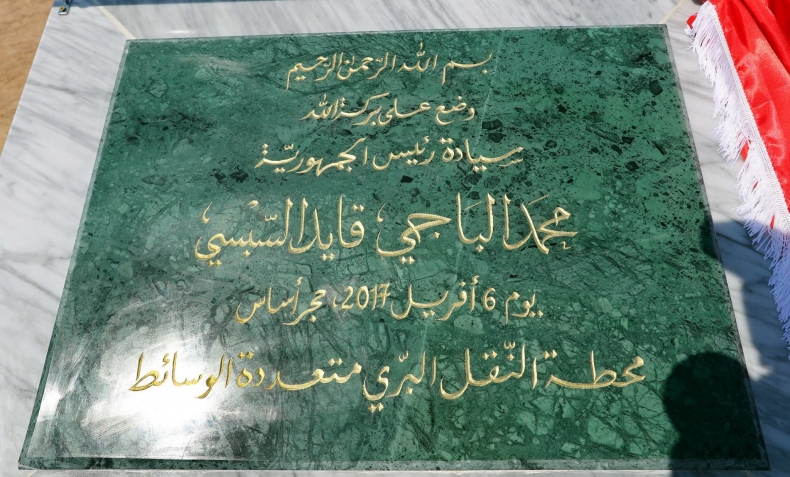 بسم الله الرّحمٰن الرّحيم
وضع على بركة الله
سيادة رئيس الجمهوريّة
محمد الباجي قايد السّبسي
يوم 6 أفريل 2017، حجر أساس
محطة النّقل البرّي متعددة الوسائط